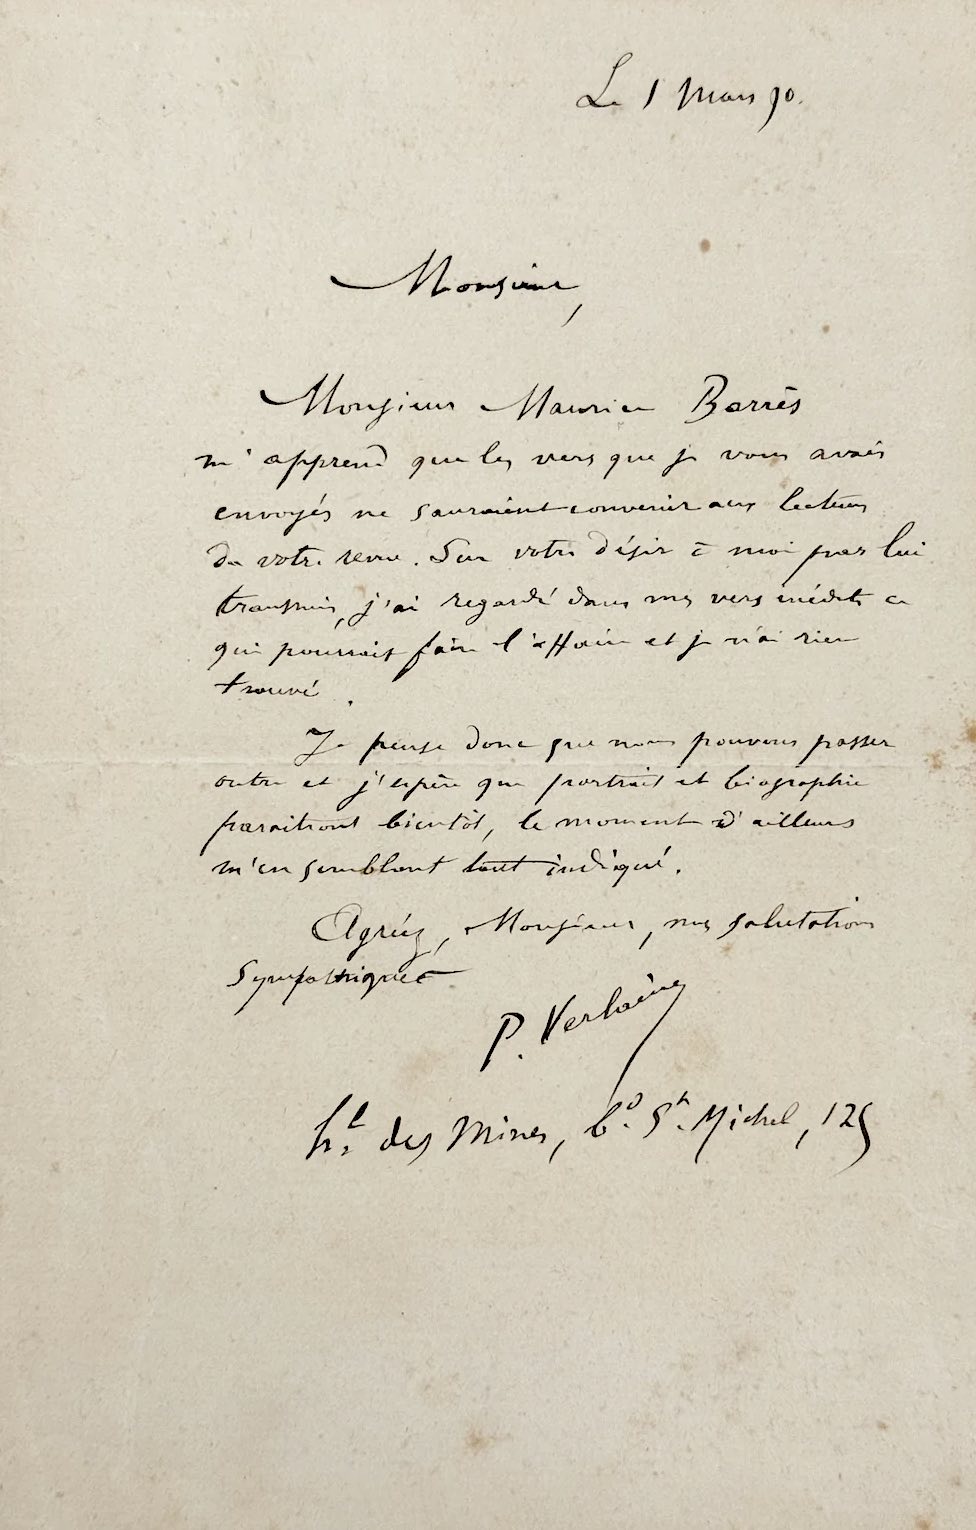 Le 1 Mars 90.
Monsieur,
Monsieur Maurice Barrès
m'apprend que les vers que je vous avais
envoyés ne sauraient convenir aux lecteurs
de votre revue. Sur votre désir à moi par lui
transmis, j'ai regardé dans mes vers inédits ce
qui pourrait faire l'affaire et je n'ai rien
trouvé.
Je pense donc que nous pouvons passer
outre et j'espère que portrait et biographie
paraîtront bientôt, le moment d'ailleurs
m'en semblant tout indiqué.
Agréez, Monsieur, mes salutations
sympathiques
P. Verlaine
hl. des Mines, bd. St. Michel, 125